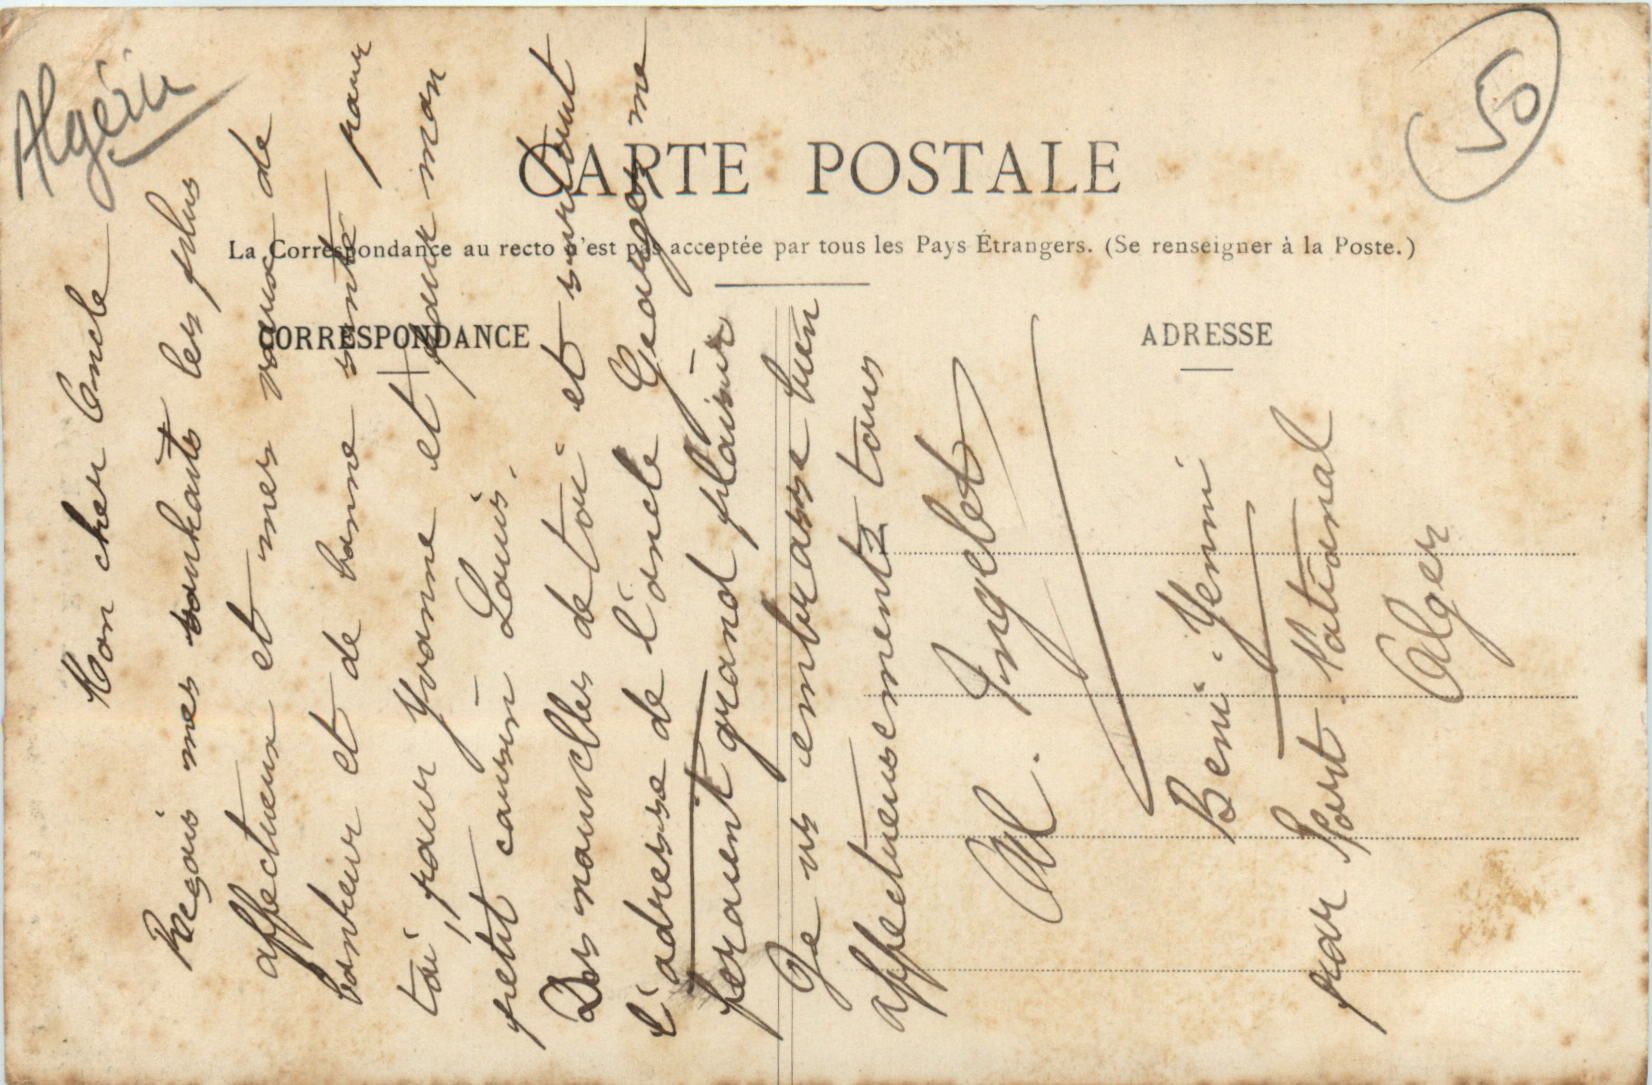 Algérie
50
CARTE POSTALE
La Correspondance au recto n'est pas acceptée par tous les Pays Étrangers. (Se renseigner à la Poste.)
CORRESPONDANCE
ADRESSE
Mon cher Oncle
Reçois mes souhaits les plus
affectueux et mes vœux de
bonheur et de bonne santé pour
toi, pour Yvonne et pour mon
petit cousin Louis.
Des nouvelles de toi et surtout
l'adresse de l'oncle Georges me
feraient grand plaisir
Je vs embrasse bien
affectueusement tous
M. Inglet
Beni-Yenni
par Fort National
Alger